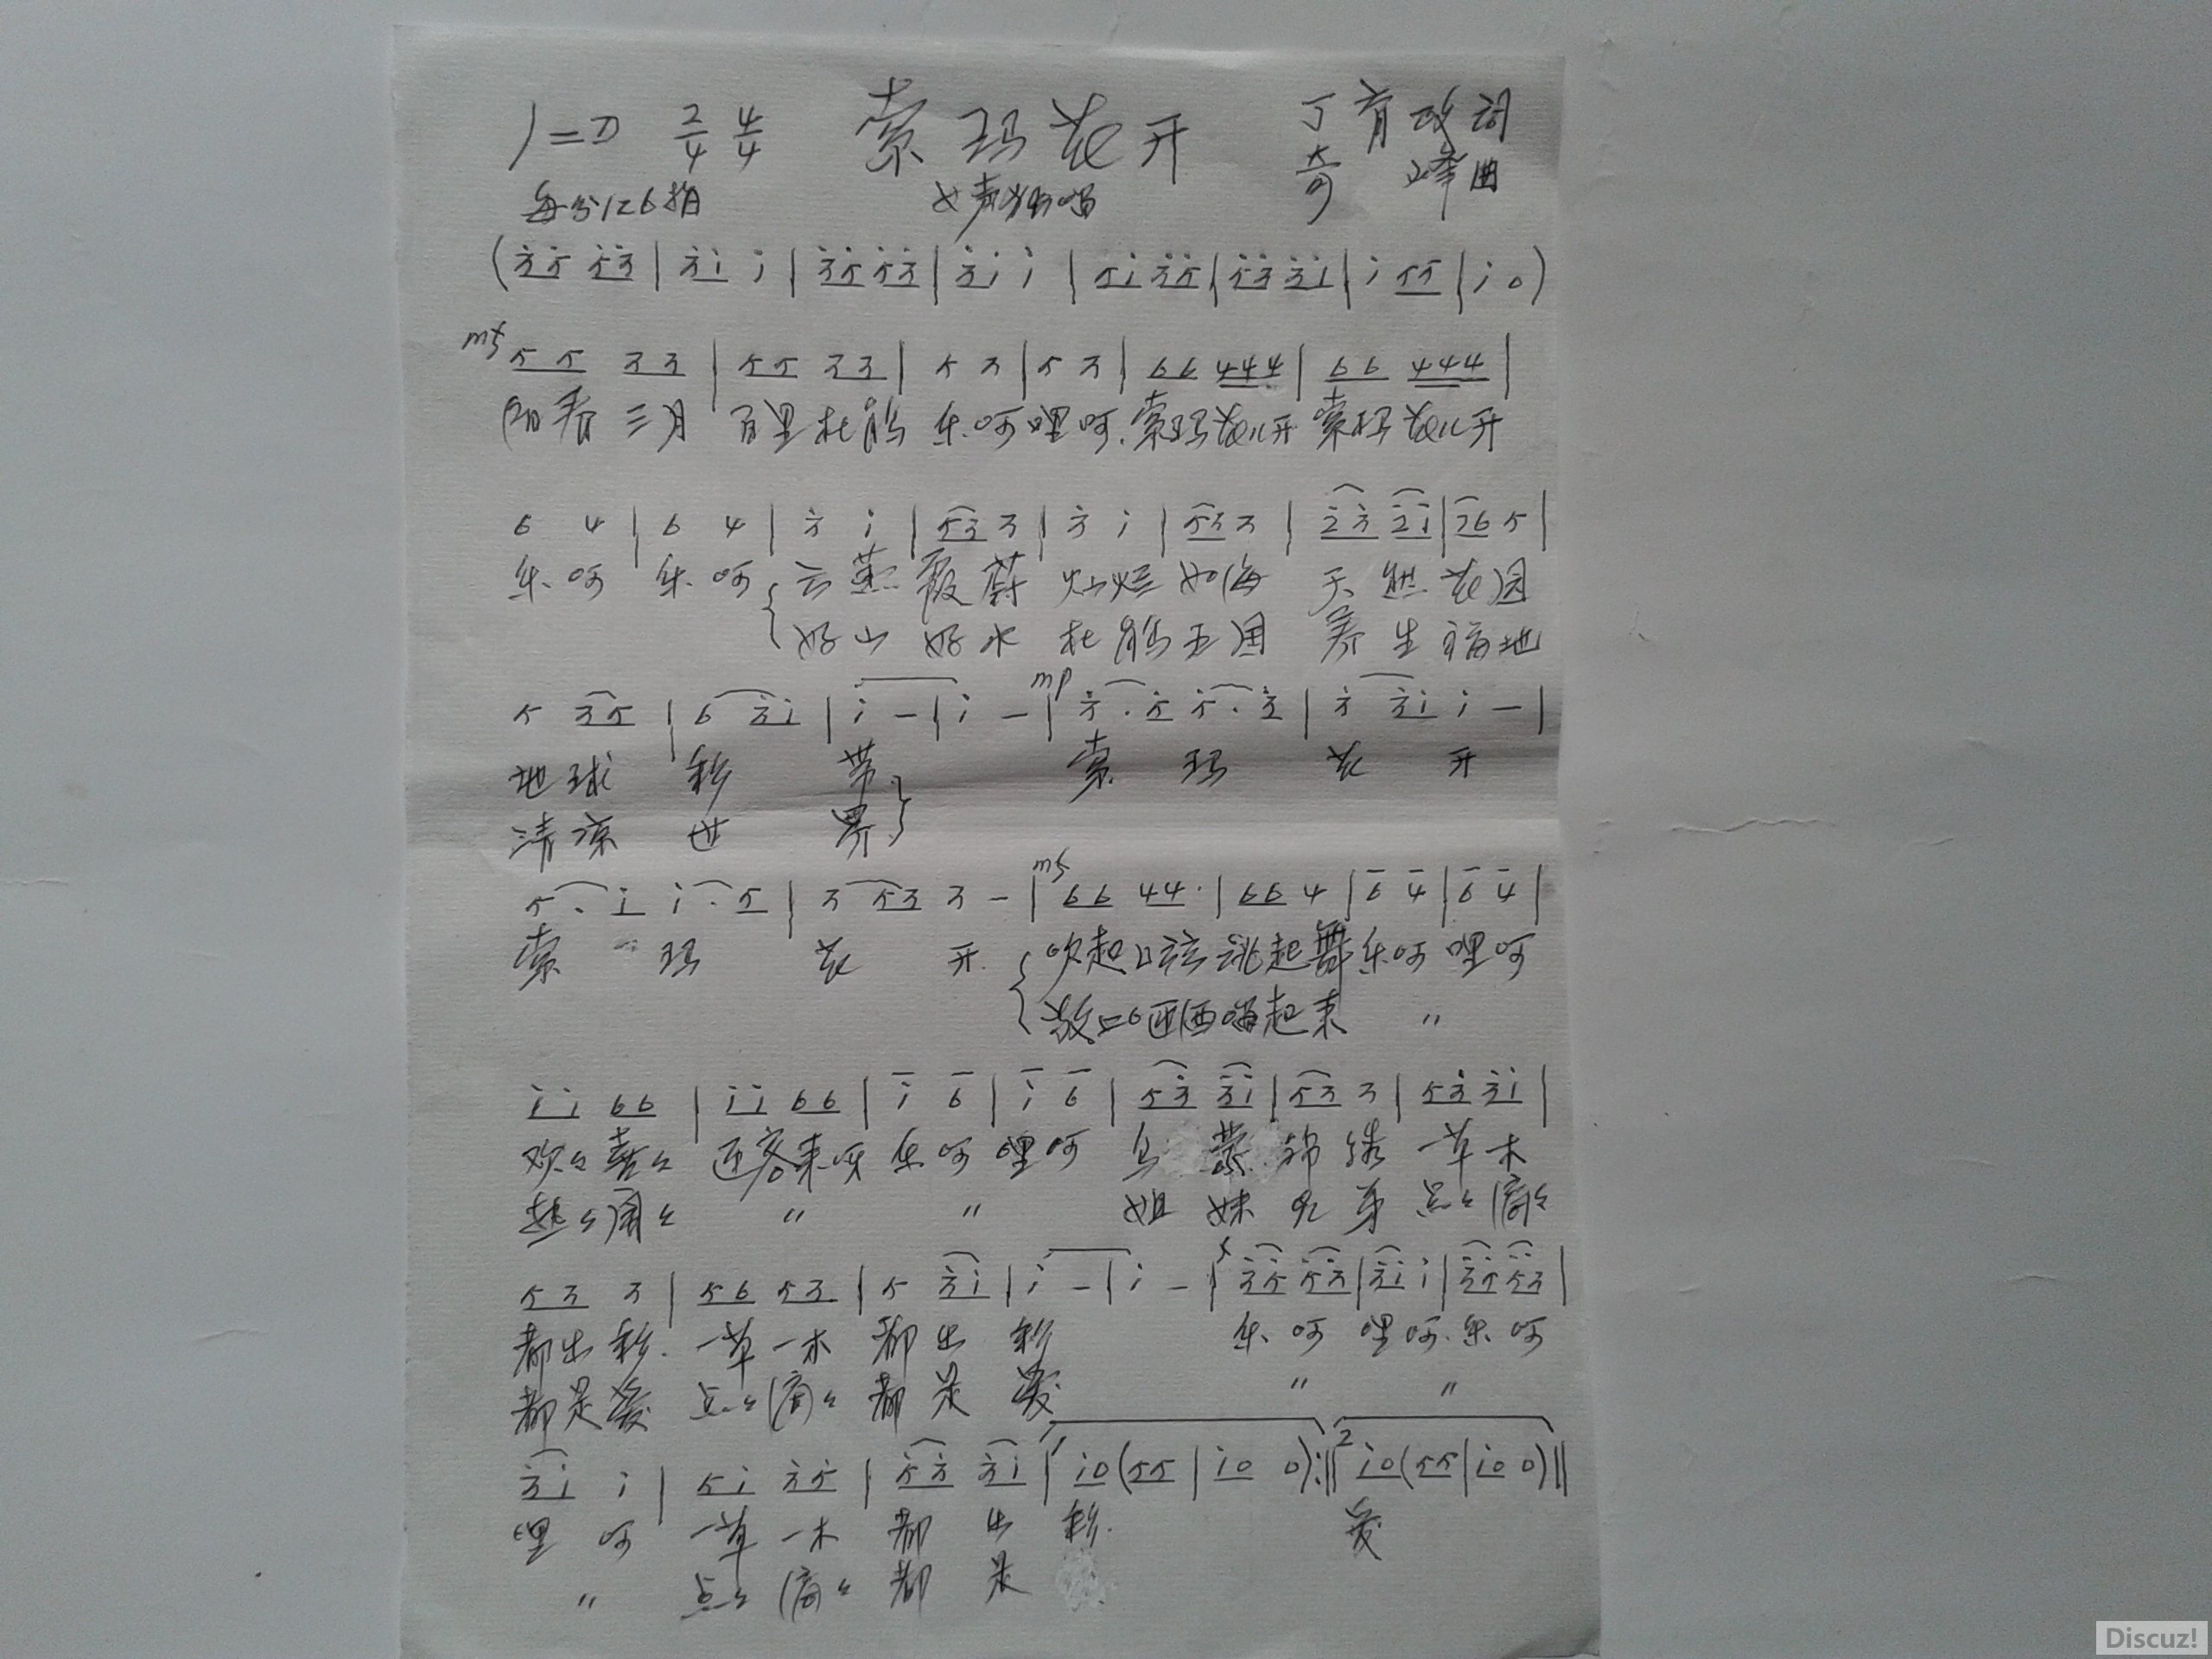 1=D 2/4 4/4 索玛花开 丁有政词
每分126拍 女声独唱 奇峰曲
(3̇5̇ 5̇3̇ | 3̇1̇ 1̇ | 3̇5̇ 5̇3̇ | 3̇1̇ 1̇ | 51̇ 3̇5̇ | 5̇3̇ 3̇1̇ | 1̇ 55 | 1̇ 0)
mf 5 5 3 3 | 55 33 | 5 3 | 5 3 | 66 444 | 66 444 |
阳春三月 百里杜鹃 乐呵哩呵.索玛花儿开 索玛花儿开
6 4 | 6 4 | 3̇ 1̇ | 53 3 | 3̇ 1̇ | 53 3 | 2̇3̇ 2̇1̇ | 26 5 |
乐呵 乐呵 {云蒸霞蔚 灿烂如海 天然花园
好山好水 杜鹃王国 养生福地
5 35 | 6 3̇1̇ | 1̇ - | 1̇ - | mp 3̇ . 5̇ 5̇ . 3̇ | 3̇ 3̇1̇ 1̇ - |
地球 彩 带 索 玛 花 开
清凉 世 界}
5 . 1̇ 1̇ . 5 | 3 53 3 - | mf 66 44 | 66 4 | 6 4 | 6 4 |
索 玛 花 开. {吹起口弦跳起舞乐呵哩呵
敬口咂酒唱起来 〃
1̇1̇ 66 | 1̇1̇ 66 | 1̇ 6 | 1̇ 6 | 53̇ 3̇1̇ | 53 3 | 53̇ 3̇1̇ |
欢々喜々 迎客来呀 乐呵哩呵 乌蒙锦绣 一草木
热々闹々 〃 〃 姐妹兄弟 点々滴々
53 3 | 56 53 | 5 3̇1̇ | 1̇ - | 1̇ - | f 3̇5̇ 5̇3̇ | 3̇1̇ 1̇ | 3̇5̇ 5̇3̇ |
都出彩. 一草一木 都出彩 乐呵哩呵.乐呵
都是爱 点々滴々 都是爱 〃 〃
3̇1̇ 1̇ | 51̇ 3̇5̇ | 5̇3̇ 3̇1̇ | 1 1̇0(55 | 1̇0 0):‖ 2 1̇0(55 | 1̇0 0)‖
哩呵 一草一木 都出彩. 爱
〃 点々滴々 都是
Discuz!